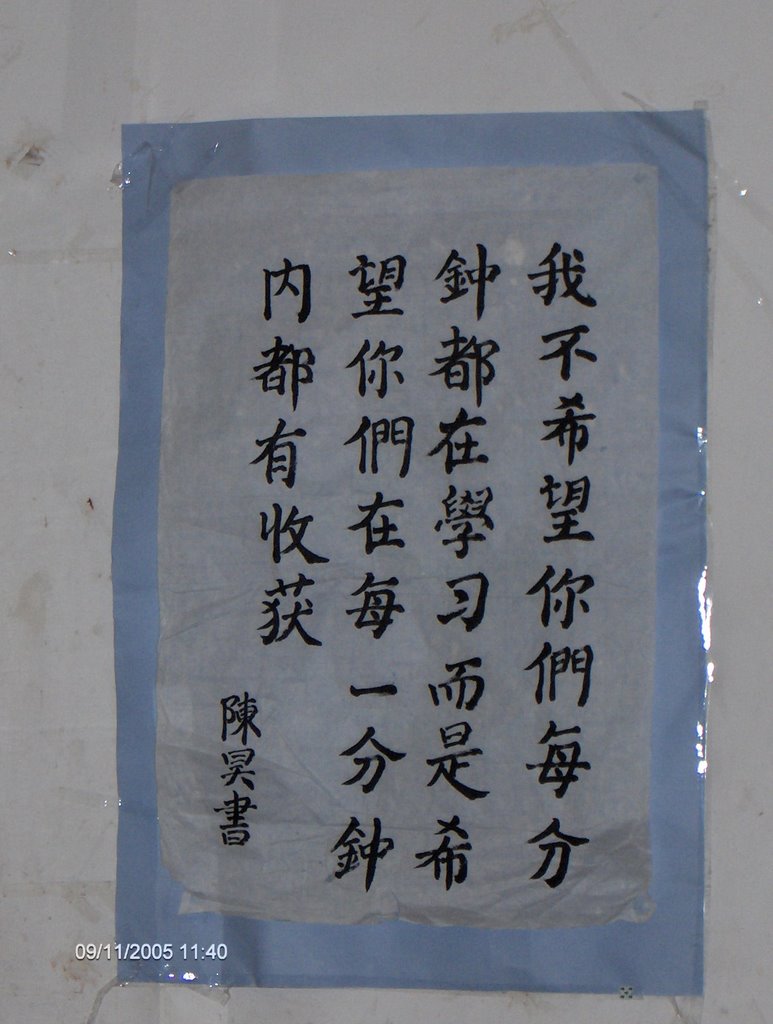 我不希望你們每分
鈡都在學习而是希
望你們在每一分鈡
内都有收获
陳昊書
09/11/2005 11:40